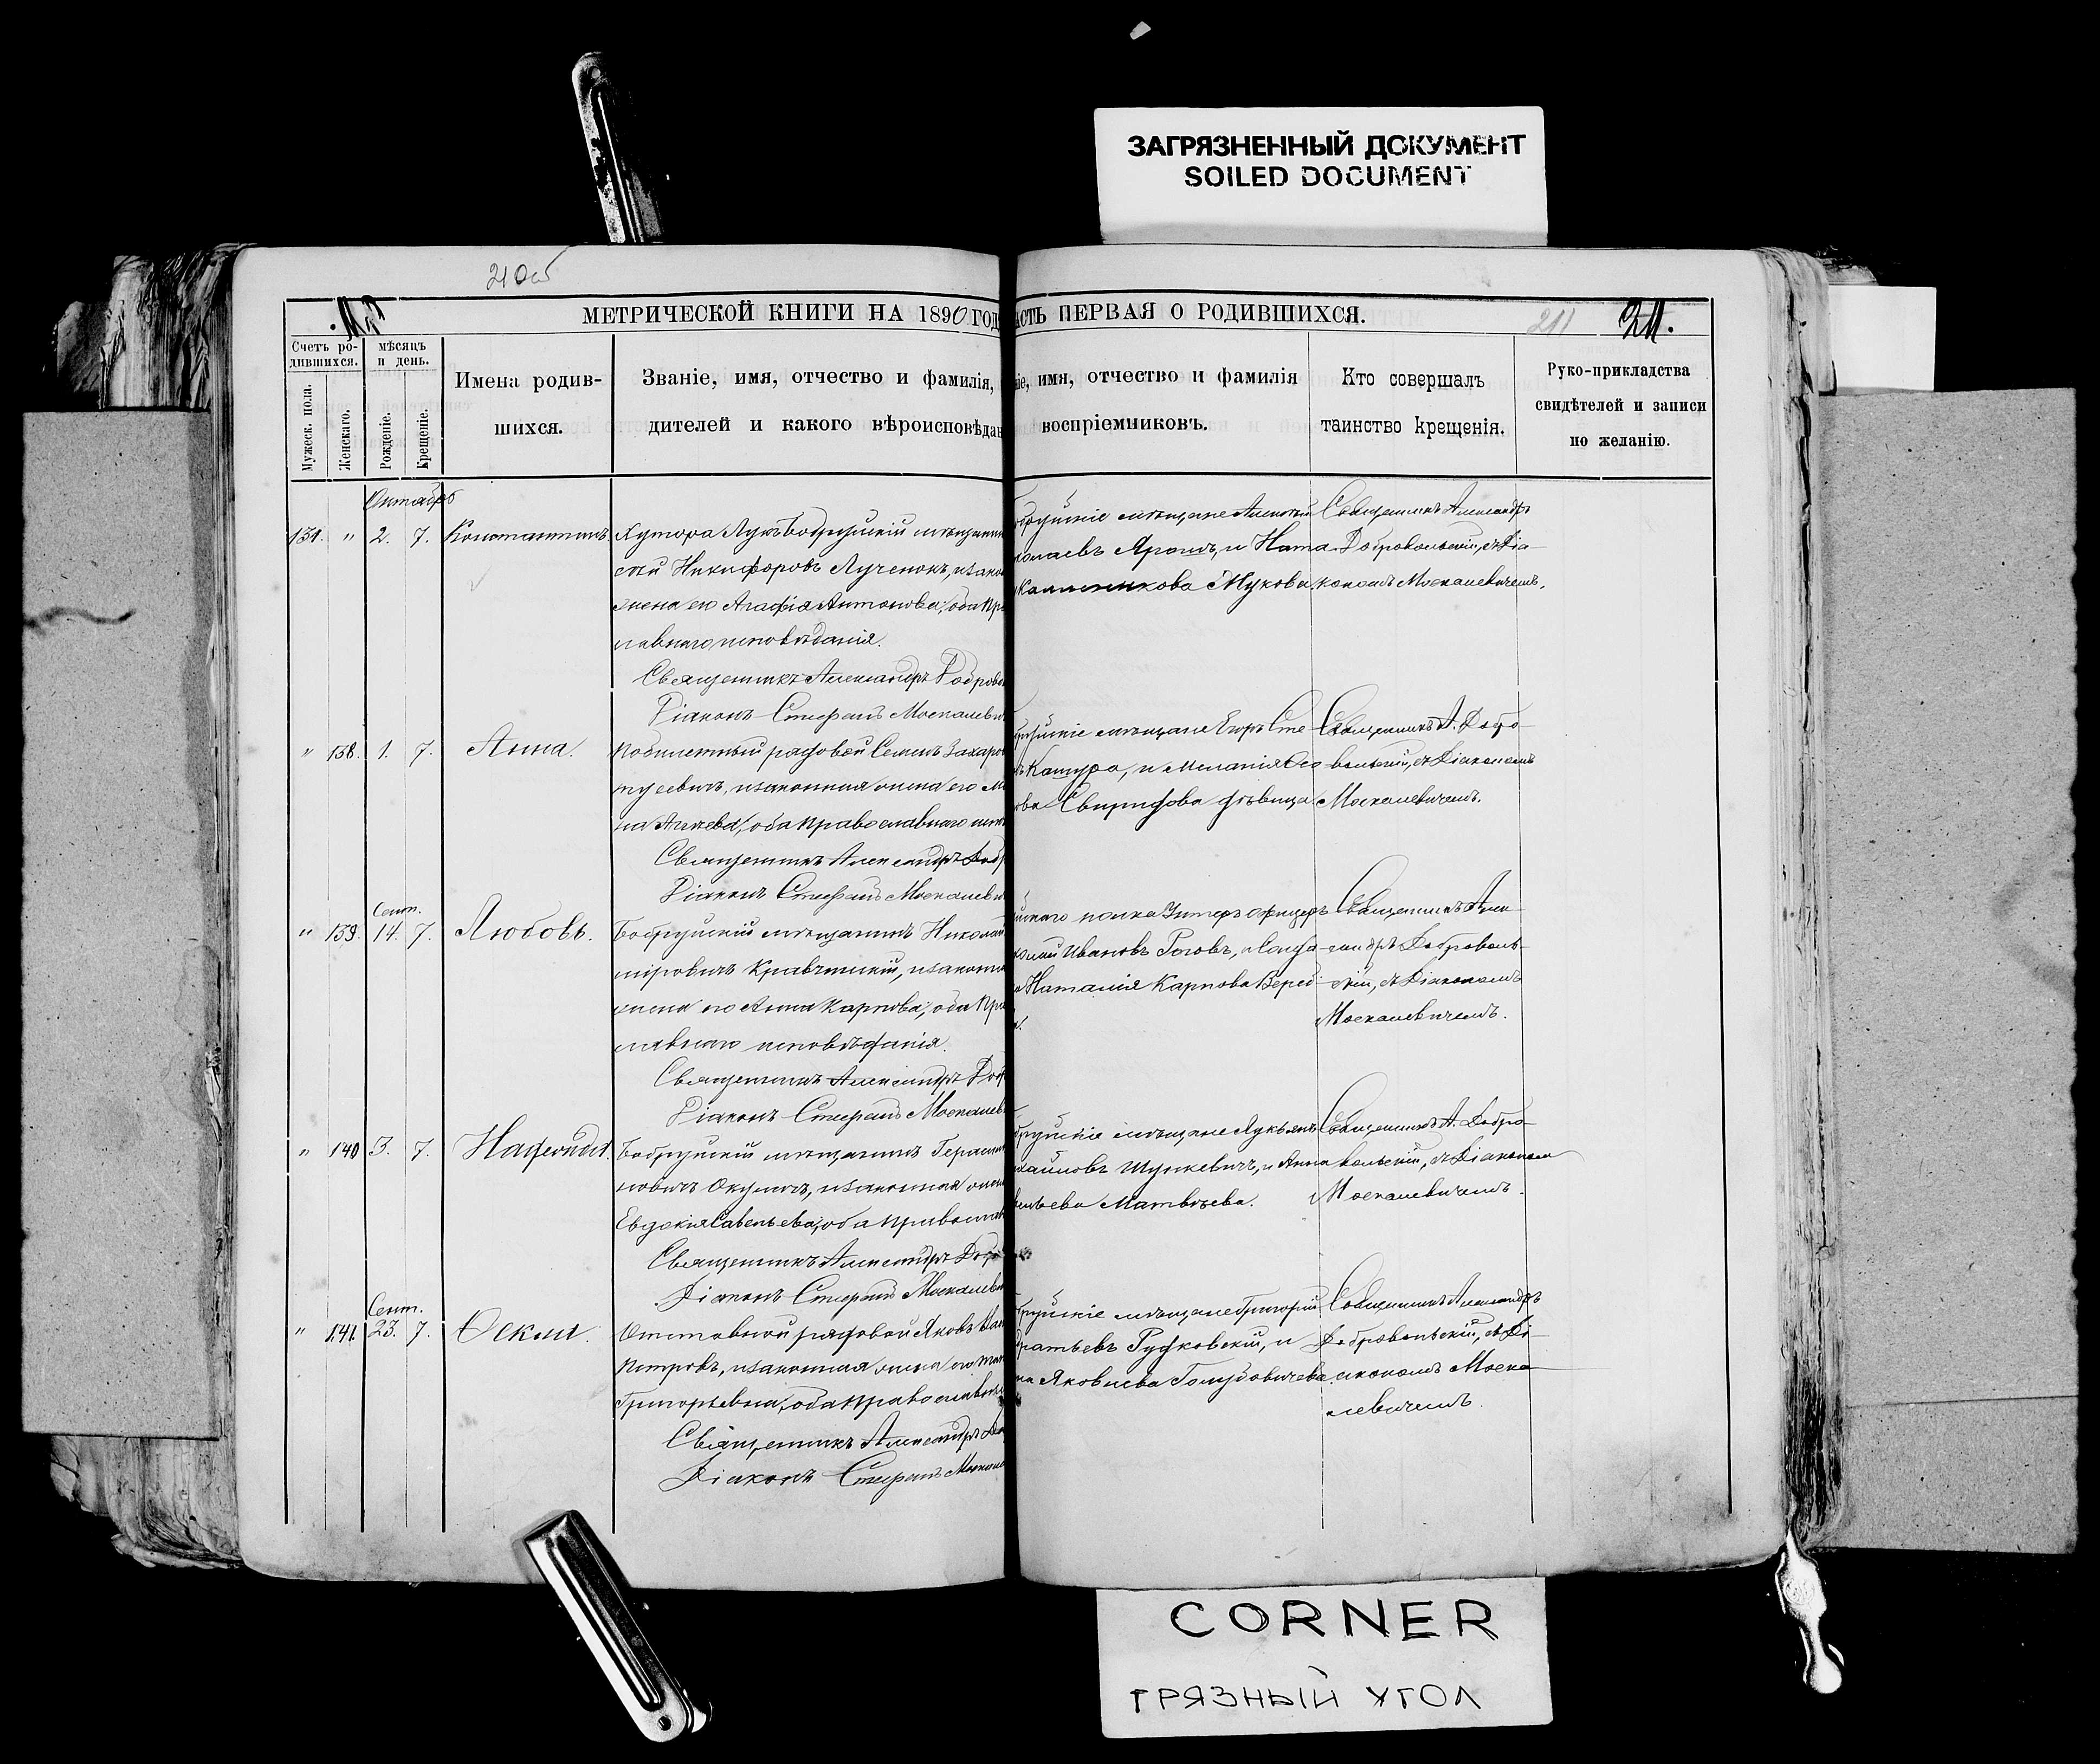 ЗАГРЯЗНЕННЫЙ ДОКУМЕНТ
SOILED DOCUMENT
210об
МЕТРИЧЕСКОЙ КНИГИ НА 1890 ГОД
АСТЬ ПЕРВАЯ О РОДИВШИХСЯ.
211
211.
Счетъ ро-
дившихся.
Мужеск. пола.
Женскаго.
мѣсяцъ
и день.
Рожденіе.
Крещеніе.
Имена родив-
шихся.
Званіе, имя, отчество и фамилія,
дителей и какого вѣроисповѣдан
ніе, имя, отчество и фамилія
воспріемниковъ.
Кто совершалъ
таинство крещенія.
Руко-прикладства
свидѣтелей и записи
по желанію.
Октябрь
131. " 2. 7. Константинъ
Хутора Лукъ Бобруйскій мѣщанин
Никифоровъ Лученокъ, изако
жена его Агафія Антонова, оба пра
славнаго исповѣданія.
Священникъ Александръ Доброво
Діаконъ Стефанъ Москалеви
обруйскіе мѣщане Алексѣй
колаевъ Ярошъ, и Ната
Жукова.
Священникъ Александръ
Добровольскій, съ Діа-
кономъ Москалевичемъ.
" 138. 1. 7. Анна.
Побилетный рядовой Семенъ Захаров
изаконная жена его М
оба православнаго испо
Священникъ Александръ Добр
Діаконъ Стефанъ Москалеви
бруйскіе мѣщане Егоръ Сте
Кацура, и Меланія Оси
ова Свиридова дѣвица
Священникъ А. Добро-
вольскій, съ Діакономъ
Москалевичемъ.
Сент.
" 139. 14. 7. Любовь.
Бобруйскій мѣщанинъ Николай
міровичъ Кравчинскій, изаконн
жена его Анна Карпова, оба пра
славнаго исповѣданія.
Священникъ Александръ Доб
Діаконъ Стефанъ Москалев
скаго полка Унтеръ офицеръ
колай Ивановъ Роговъ, и Солда
а Наталія Карпова Веред
Священникъ Алек-
сандръ Доброволь-
скій, съ Діакономъ
Москалевичемъ.
" 140 3. 7.
Бобруйскій мѣщанинъ Герасим
новичъ Окуличъ, изаконная жена
Евдокія Савельева, оба православ
Священникъ Александръ Добро
Діаконъ Стефанъ Москалеви
бруйскіе мѣщане Лукьянъ
хайловъ Шункевичъ, и Анна
вельева Матвѣева.
Священникъ А. Добро-
вольскій, съ Діакономъ
Москалевичемъ.
Сент.
" 141. 23. 7. Ѳекла.
Отставной рядовой Яковъ
Петровъ, изаконная жена его
Григорьевна, оба православн
Священникъ Александръ До
Діаконъ Стефанъ Москале
бруйскіе мѣщане Григорій
дратьевъ Рудковскій, и
на Яковлева Голубовичева.
Священникъ Александръ
Добровольскій, съ Ді-
акономъ Моска-
левичемъ.
CORNER
ГРЯЗНЫЙ УГОЛ